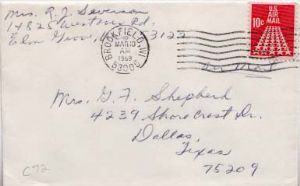 Mrs. R. J. Severson
14825 Westover Rd.
Elm Grove, 53122
BROOKFIELD, WI
MAR 10
AM
1969
53005
U.S.
AIR MAIL
10c
Air Mail
Mrs. G. F. Shepherd
4239 Shorecrest Dr.
Dallas,
Texas
75209
C72